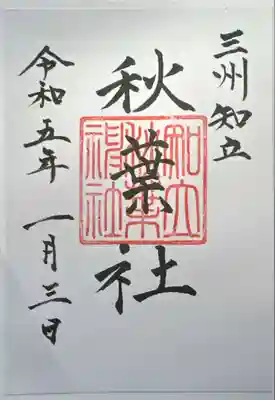 三州知立
秋葉社
知立秋葉神社
令和五年 一月三日